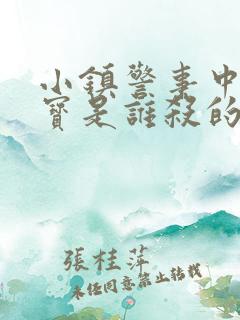 小鎮警事中
寶是誰殺的
張桂萍
未經同意禁止轉載